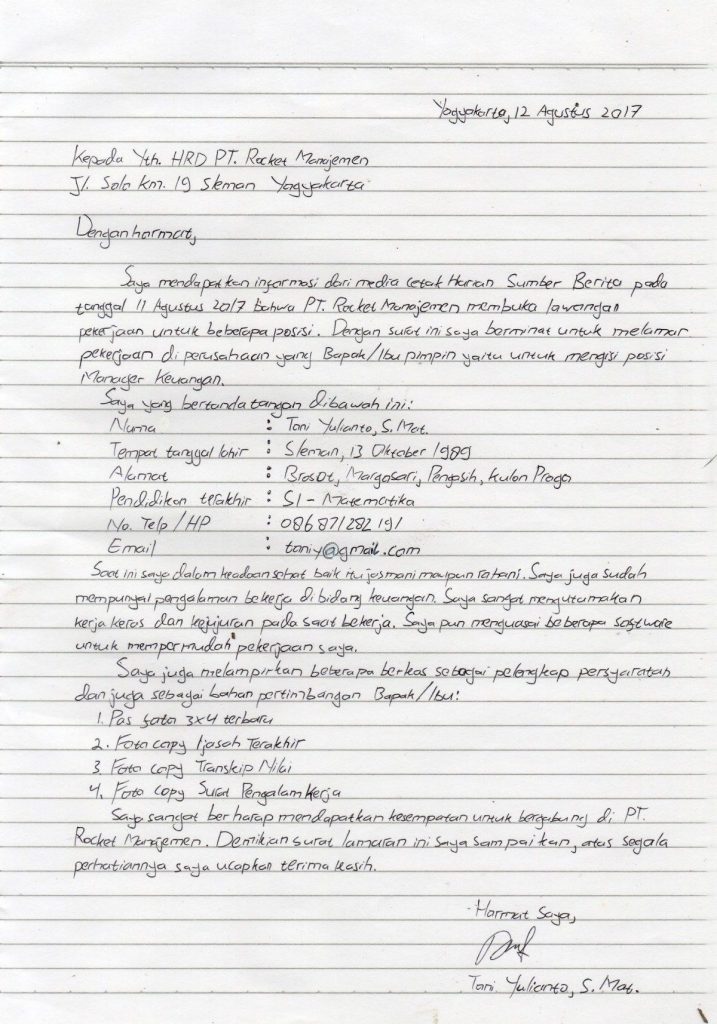 Yogyakarta, 12 Agustus 2017
Kepada Yth. HRD PT. Rocket Manajemen
Jl. Solo Km. 19 Sleman Yogyakarta
Dengan hormat,
Saya mendapatkan informasi dari media cetak Harian Sumber Berita pada
tanggal 11 Agustus 2017 bahwa PT. Rocket Manajemen membuka lawangan
pekerjaan untuk beberapa posisi. Dengan surat ini saya berminat untuk melamar
pekerjaan di perusahaan yang Bapak/Ibu pimpin yaitu untuk mengisi posisi
Manager Keuangan.
Saya yang bertanda tangan dibawah ini:
Nama : Toni Yulianto, S. Mat.
Tempat tanggal lahir : Sleman, 13 Oktober 1989
Alamat : Brosot, Margosari, Pengasih, Kulon Progo
Pendidikan terakhir : S1 - Matematika
No. Telp/HP : 08687128219/
Email : toniy@gmail.com
Saat ini saya dalam keadaan sehat baik itu jasmani maupun rohani. Saya juga sudah
mempunyai pengalaman bekerja dibidang keuangan. Saya sangat mengutamakan
kerja keras dan kejujuran pada saat bekerja. Saya pun menguasai beberapa software
untuk mempermudah pekerjaan saya.
Saya juga melampirkan beberapa berkas sebagai pelengkap persyaratan
dan juga sebagai bahan pertimbangan Bapak/Ibu:
1. Pas foto 3x4 terbaru
2. Foto copy Ijasah Terakhir
3. Foto copy Transkip Nilai
4. Foto copy Surat Pengalam Kerja
Saya sangat berharap mendapatkan kesempatan untuk bergabung di PT.
Rocket Manajemen. Demikian surat lamaran ini saya sampaikan, atas segala
perhatiannya saya ucapkan terima kasih.
Hormat Saya,
Toni Yulianto, S. Mat.